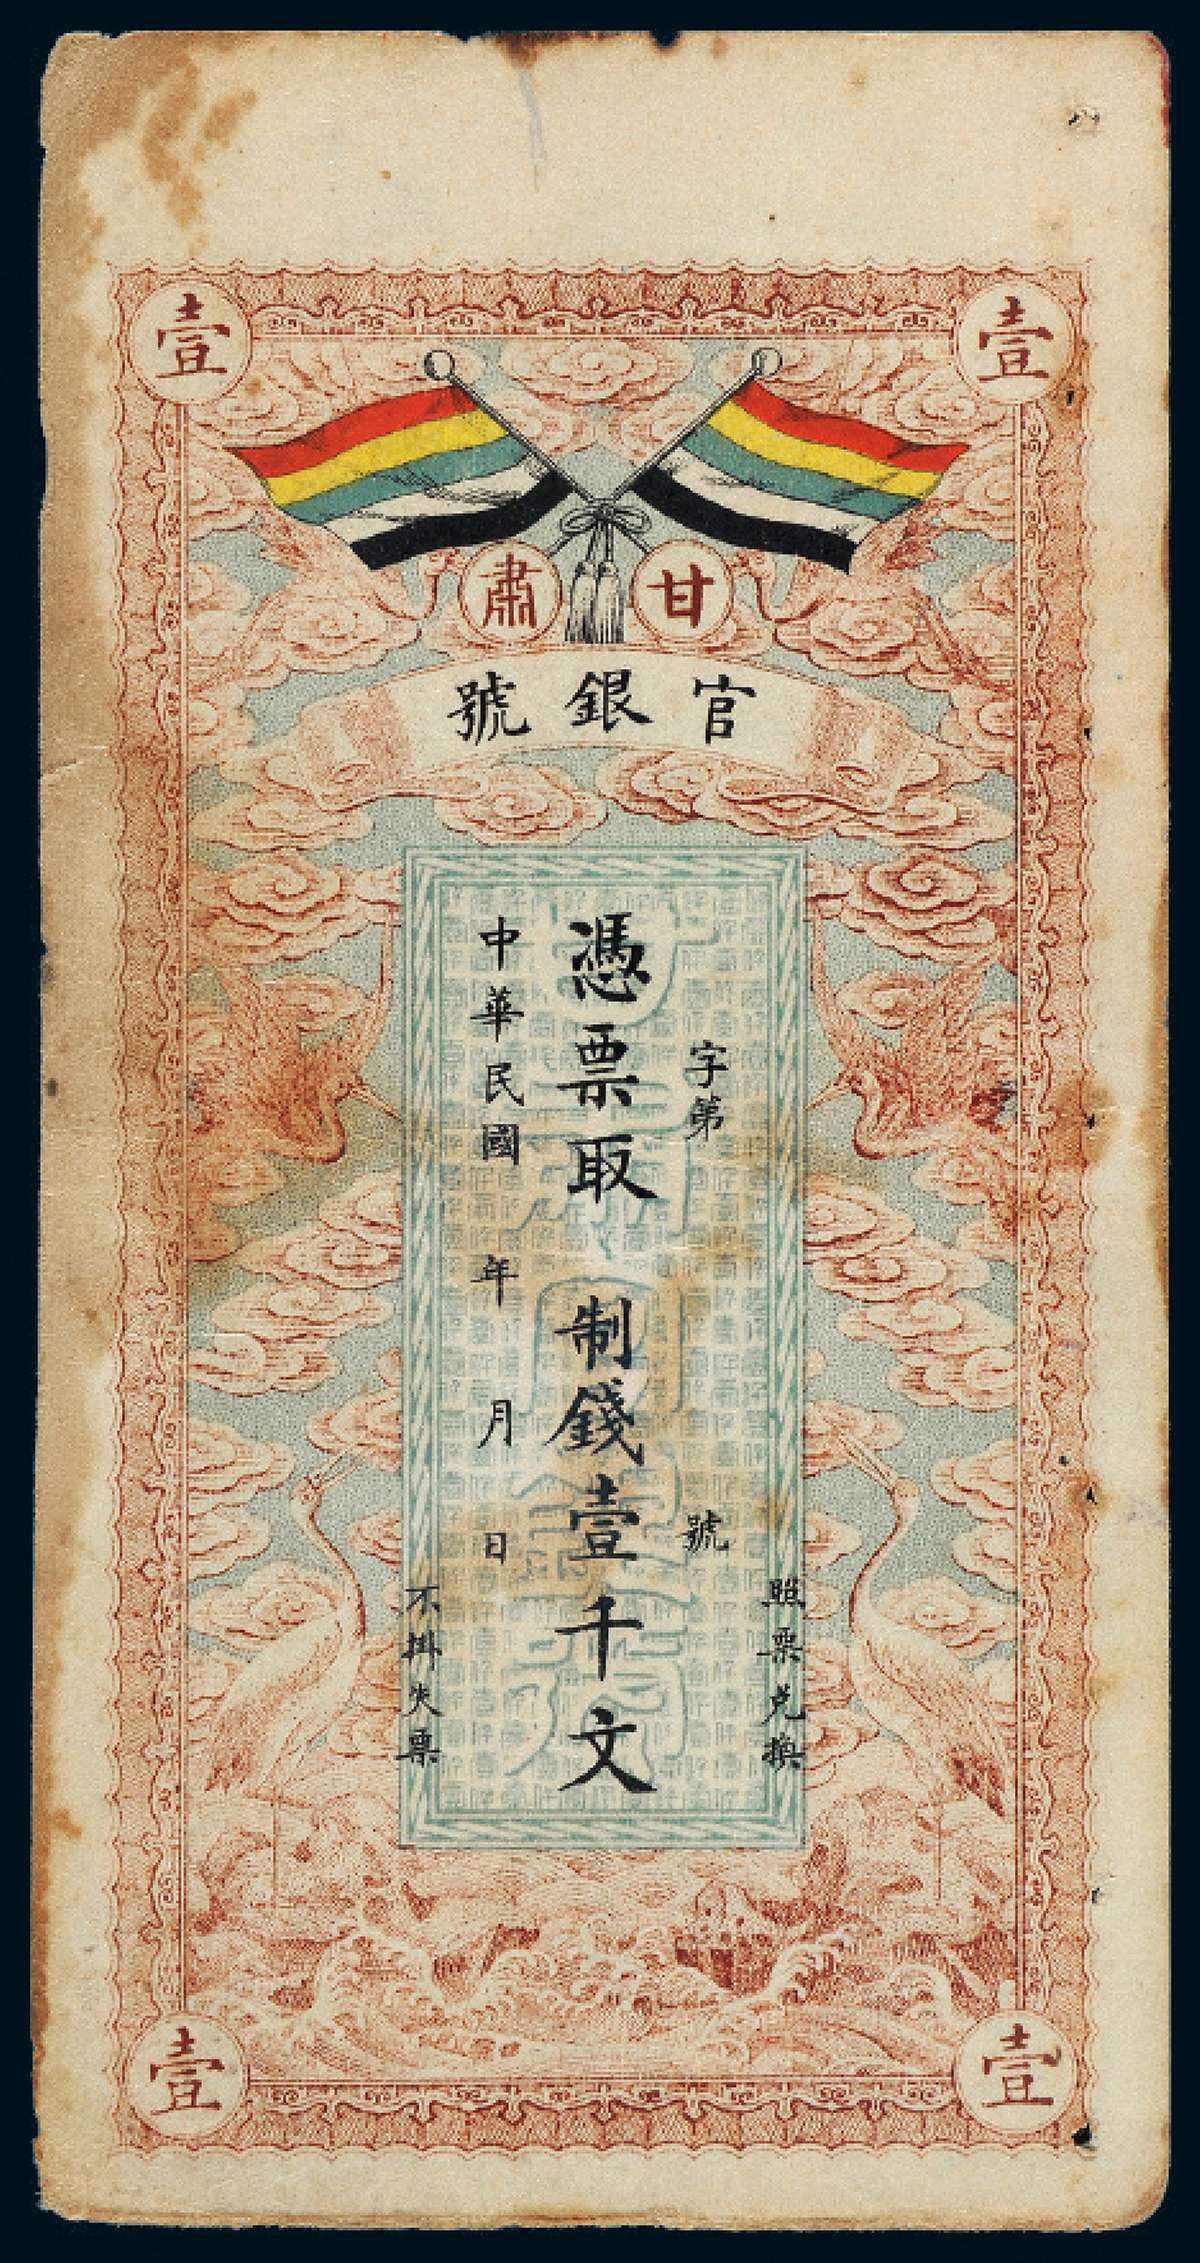 壹 壹
甘肅
官銀號
照票兑換
字第 號
憑票取制錢壹千文
中華民國 年 月 日
不掛失票
壹 壹